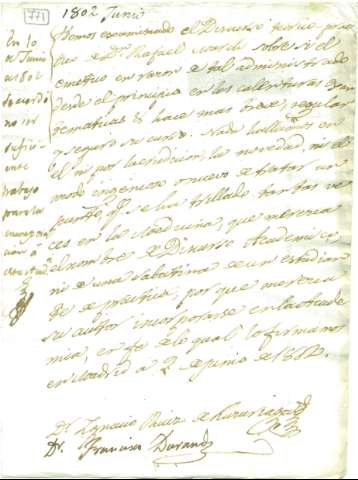 771
1802 Junio
En 10
de Junio
de 1802
se acordó
no ser
suficiente
trabajo
para la
Hemos examinado el Discurso teorico prac
tico de Dn Rafael sobre si el
emetico en razon de tal administrado
desde el principio en las calenturas
se hace mas breve, regular
y seguro su curso. Nada hallamos en
el ni por la erudicion, la novedad, ni el
modo ingenioso o nuevo de tratar un
punto qe se ha trillado tantas ve
ces en la Medicina, que merezca
el nombre de Discurso Academico,
ni de una sabatina de un estudian
te de practica, por que merezca
su autor incorporarse en la Acade
mia, en fe de lo qual lo firmamos
en Madrid a 2 de junio de 1802.
Dr Ignacio Ruiz de Luzuriaga
Dr. Francisco Durando